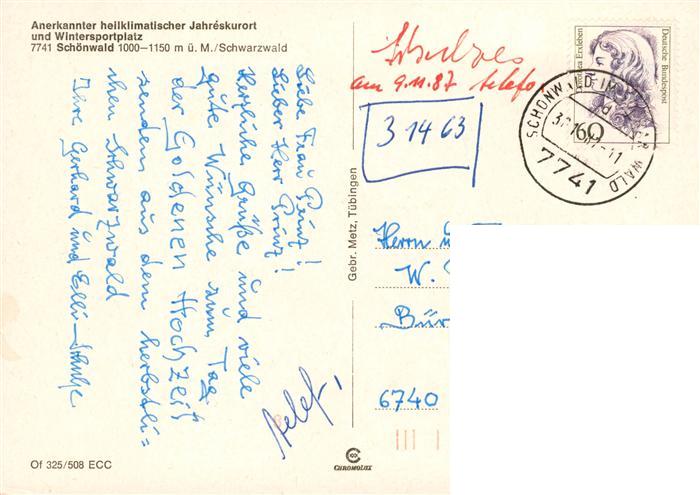 Anerkannter heilklimatischer Jahreskurort
und Wintersportplatz
7741 Schönwald 1000–1150 m ü. M./Schwarzwald
Liebe Frau Prinz!
Lieber Herr Prinz!
Herzliche Grüße und viele
gute Wünsche zum Tag
der Goldenen Hochzeit
senden aus dem herbstli-
chen Schwarzwald
Ihre Gerhard und Elli Schulze
telef.
Of 325/508 ECC
Gebr. Metz, Tübingen
Schulzes
am 9.11.87 telefo
3 14 63
Deutsche Bundespost
Erxleben
160
SCHÖNWALD IM
WALD
7741
Herrn u
W.
Bür
6740
CHROMOLUX